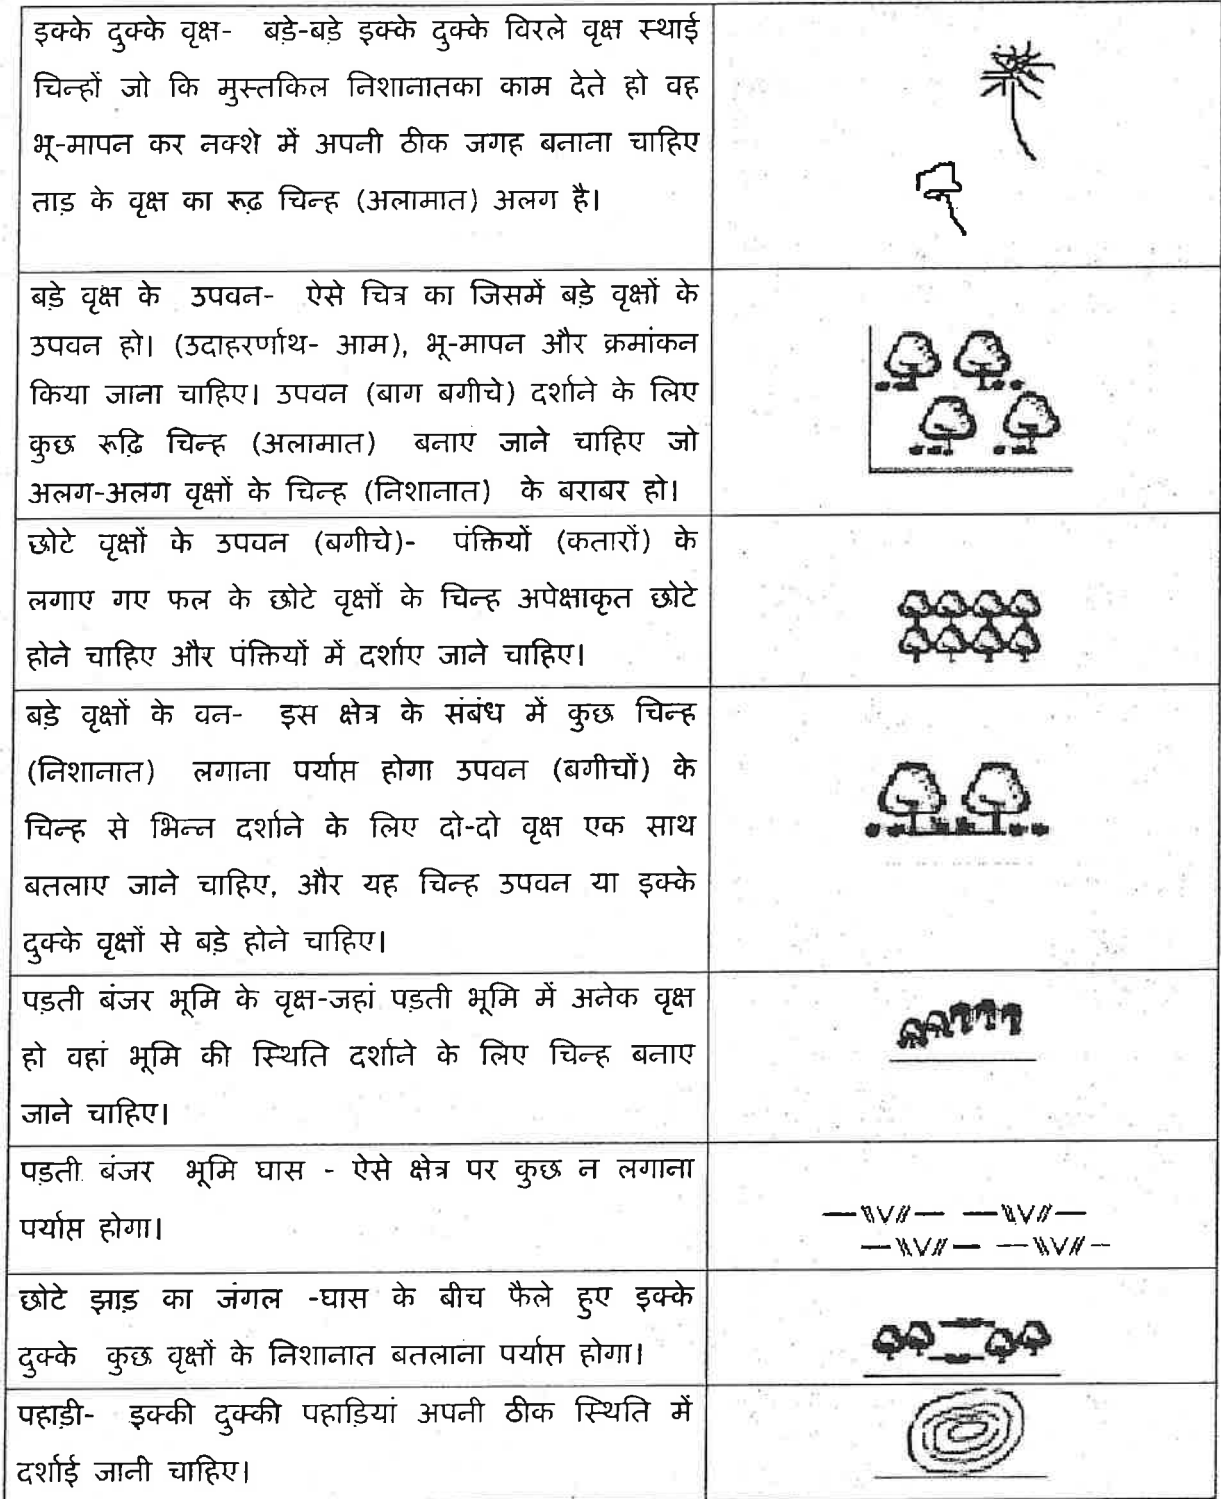 इक्के दुक्के वृक्ष- बड़े-बड़े इक्के दुक्के विरले वृक्ष स्थाई
चिन्हों जो कि मुस्तकिल निशानातका काम देते हो वह
भू-मापन कर नक्शे में अपनी ठीक जगह बनाना चाहिए
ताड़ के वृक्ष का रूढ़ चिन्ह (अलामात) अलग है।
बड़े वृक्ष के उपवन- ऐसे चित्र का जिसमें बड़े वृक्षों के
उपवन हो। (उदाहरर्णाथ- आम), भू-मापन और क्रमांकन
किया जाना चाहिए। उपवन (बाग बगीचे) दर्शाने के लिए
कुछ रूढ़ि चिन्ह (अलामात) बनाए जाने चाहिए जो
अलग-अलग वृक्षों के चिन्ह (निशानात) के बराबर हो।
छोटे वृक्षों के उपवन (बगीचे)- पंक्तियों (कतारों) के
लगाए गए फल के छोटे वृक्षों के चिन्ह अपेक्षाकृत छोटे
होने चाहिए और पंक्तियों में दर्शाए जाने चाहिए।
बड़े वृक्षों के वन- इस क्षेत्र के संबंध में कुछ चिन्ह
(निशानात) लगाना पर्याप्त होगा उपवन (बगीचों) के
चिन्ह से भिन्न दर्शाने के लिए दो-दो वृक्ष एक साथ
बतलाए जाने चाहिए, और यह चिन्ह उपवन या इक्के
दुक्के वृक्षों से बड़े होने चाहिए।
पड़ती बंजर भूमि के वृक्ष-जहां पड़ती भूमि में अनेक वृक्ष
हो वहां भूमि की स्थिति दर्शाने के लिए चिन्ह बनाए
जाने चाहिए।
पड़ती बंजर भूमि घास - ऐसे क्षेत्र पर कुछ न लगाना
पर्याप्त होगा।
छोटे झाड़ का जंगल -घास के बीच फैले हुए इक्के
दुक्के कुछ वृक्षों के निशानात बतलाना पर्याप्त होगा।
पहाड़ी- इक्की दुक्की पहाड़ियां अपनी ठीक स्थिति में
दर्शाई जानी चाहिए।